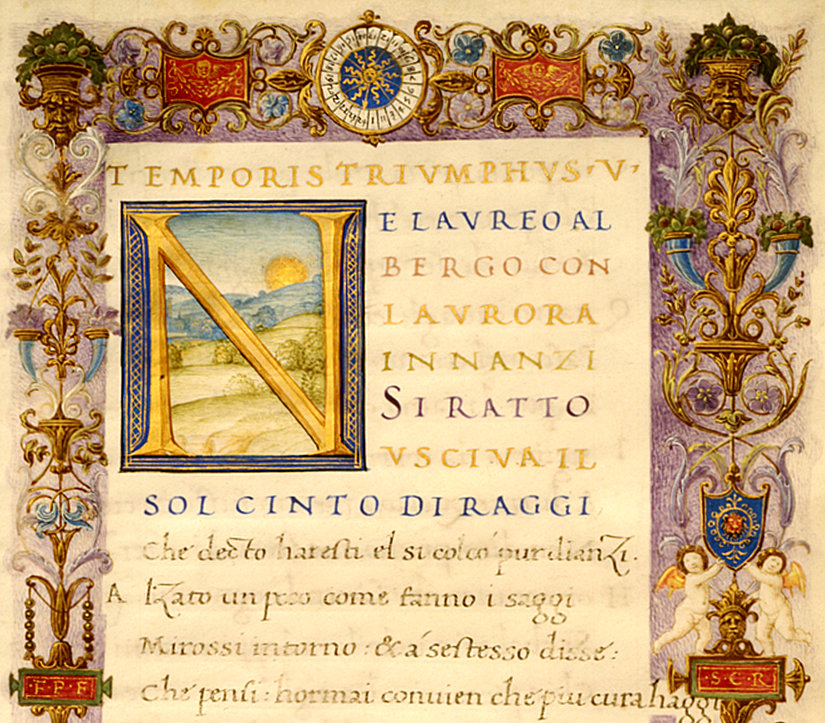 TEMPORIS TRIVMPHVS·V·
N E LAVREO AL
BERGO CON
LAVRORA
INNANZI
SI RATTO
VSCIVA IL
SOL CINTO DI RAGGI
Che decto haresti el si colcò pur dianzi.
Alzato un poco come fanno i saggi
Mirossi intorno: & á se stesso disse:
Che pensi: hormai convien che piu cura haggi
·F·P·F·
·S·C·R·